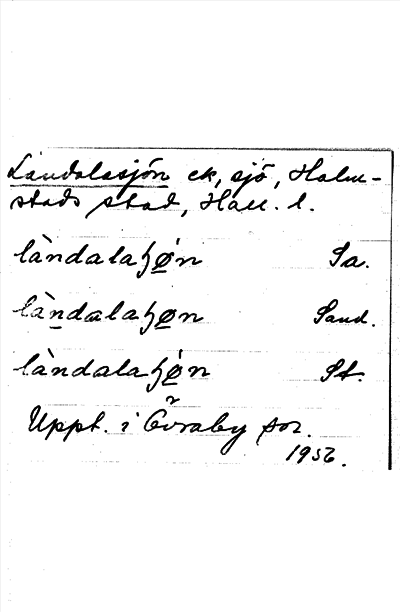 Landalasjön ek, sjö, Halm-
stads stad, Hall. l.
làndalaɧø̀n Sa.
làndalaɧøn Sand.
làndalaɧø̀n St.
Uppt. i Övraby sn.
1956.